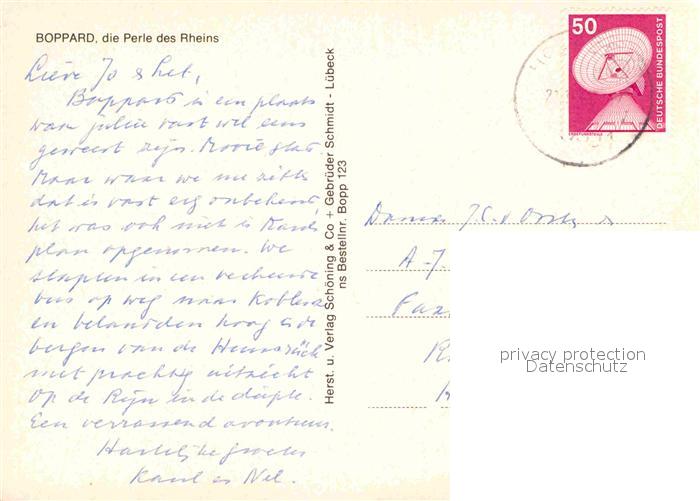 BOPPARD, die Perle des Rheins
Lieve Jo & Let,
Boppard is een plaats
waar jullie vast wel eens
geweest zijn. Mooie stad.
Maar waar we nu zitten
dat is vast erg onbekend,
het was ook niet in
plan opgenomen. We
stapten in een verkeerde
bus op weg naar Koblenz
en belandden hoog in de
bergen van de Hunsrück
met prachtig uitzicht
op de Rijn in de diepte.
Een verrassend avontuur.
Hartelijke groeten
Karel en Nel.
Herst. u. Verlag Schöning & Co + Gebrüder Schmidt - Lübeck
ns Bestellnr. Bopp 123
50
DEUTSCHE BUNDESPOST
ERDEFUNKSTELLE
A-J.
privacy protection
Datenschutz